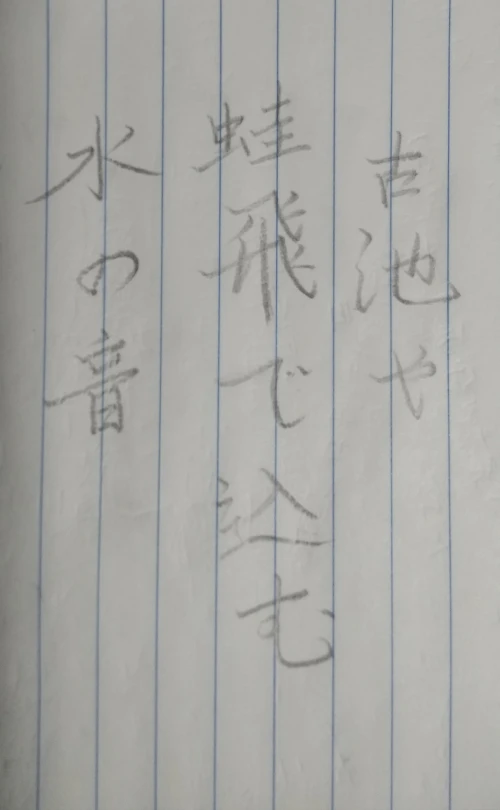 古池や
蛙飛で込む
水の音